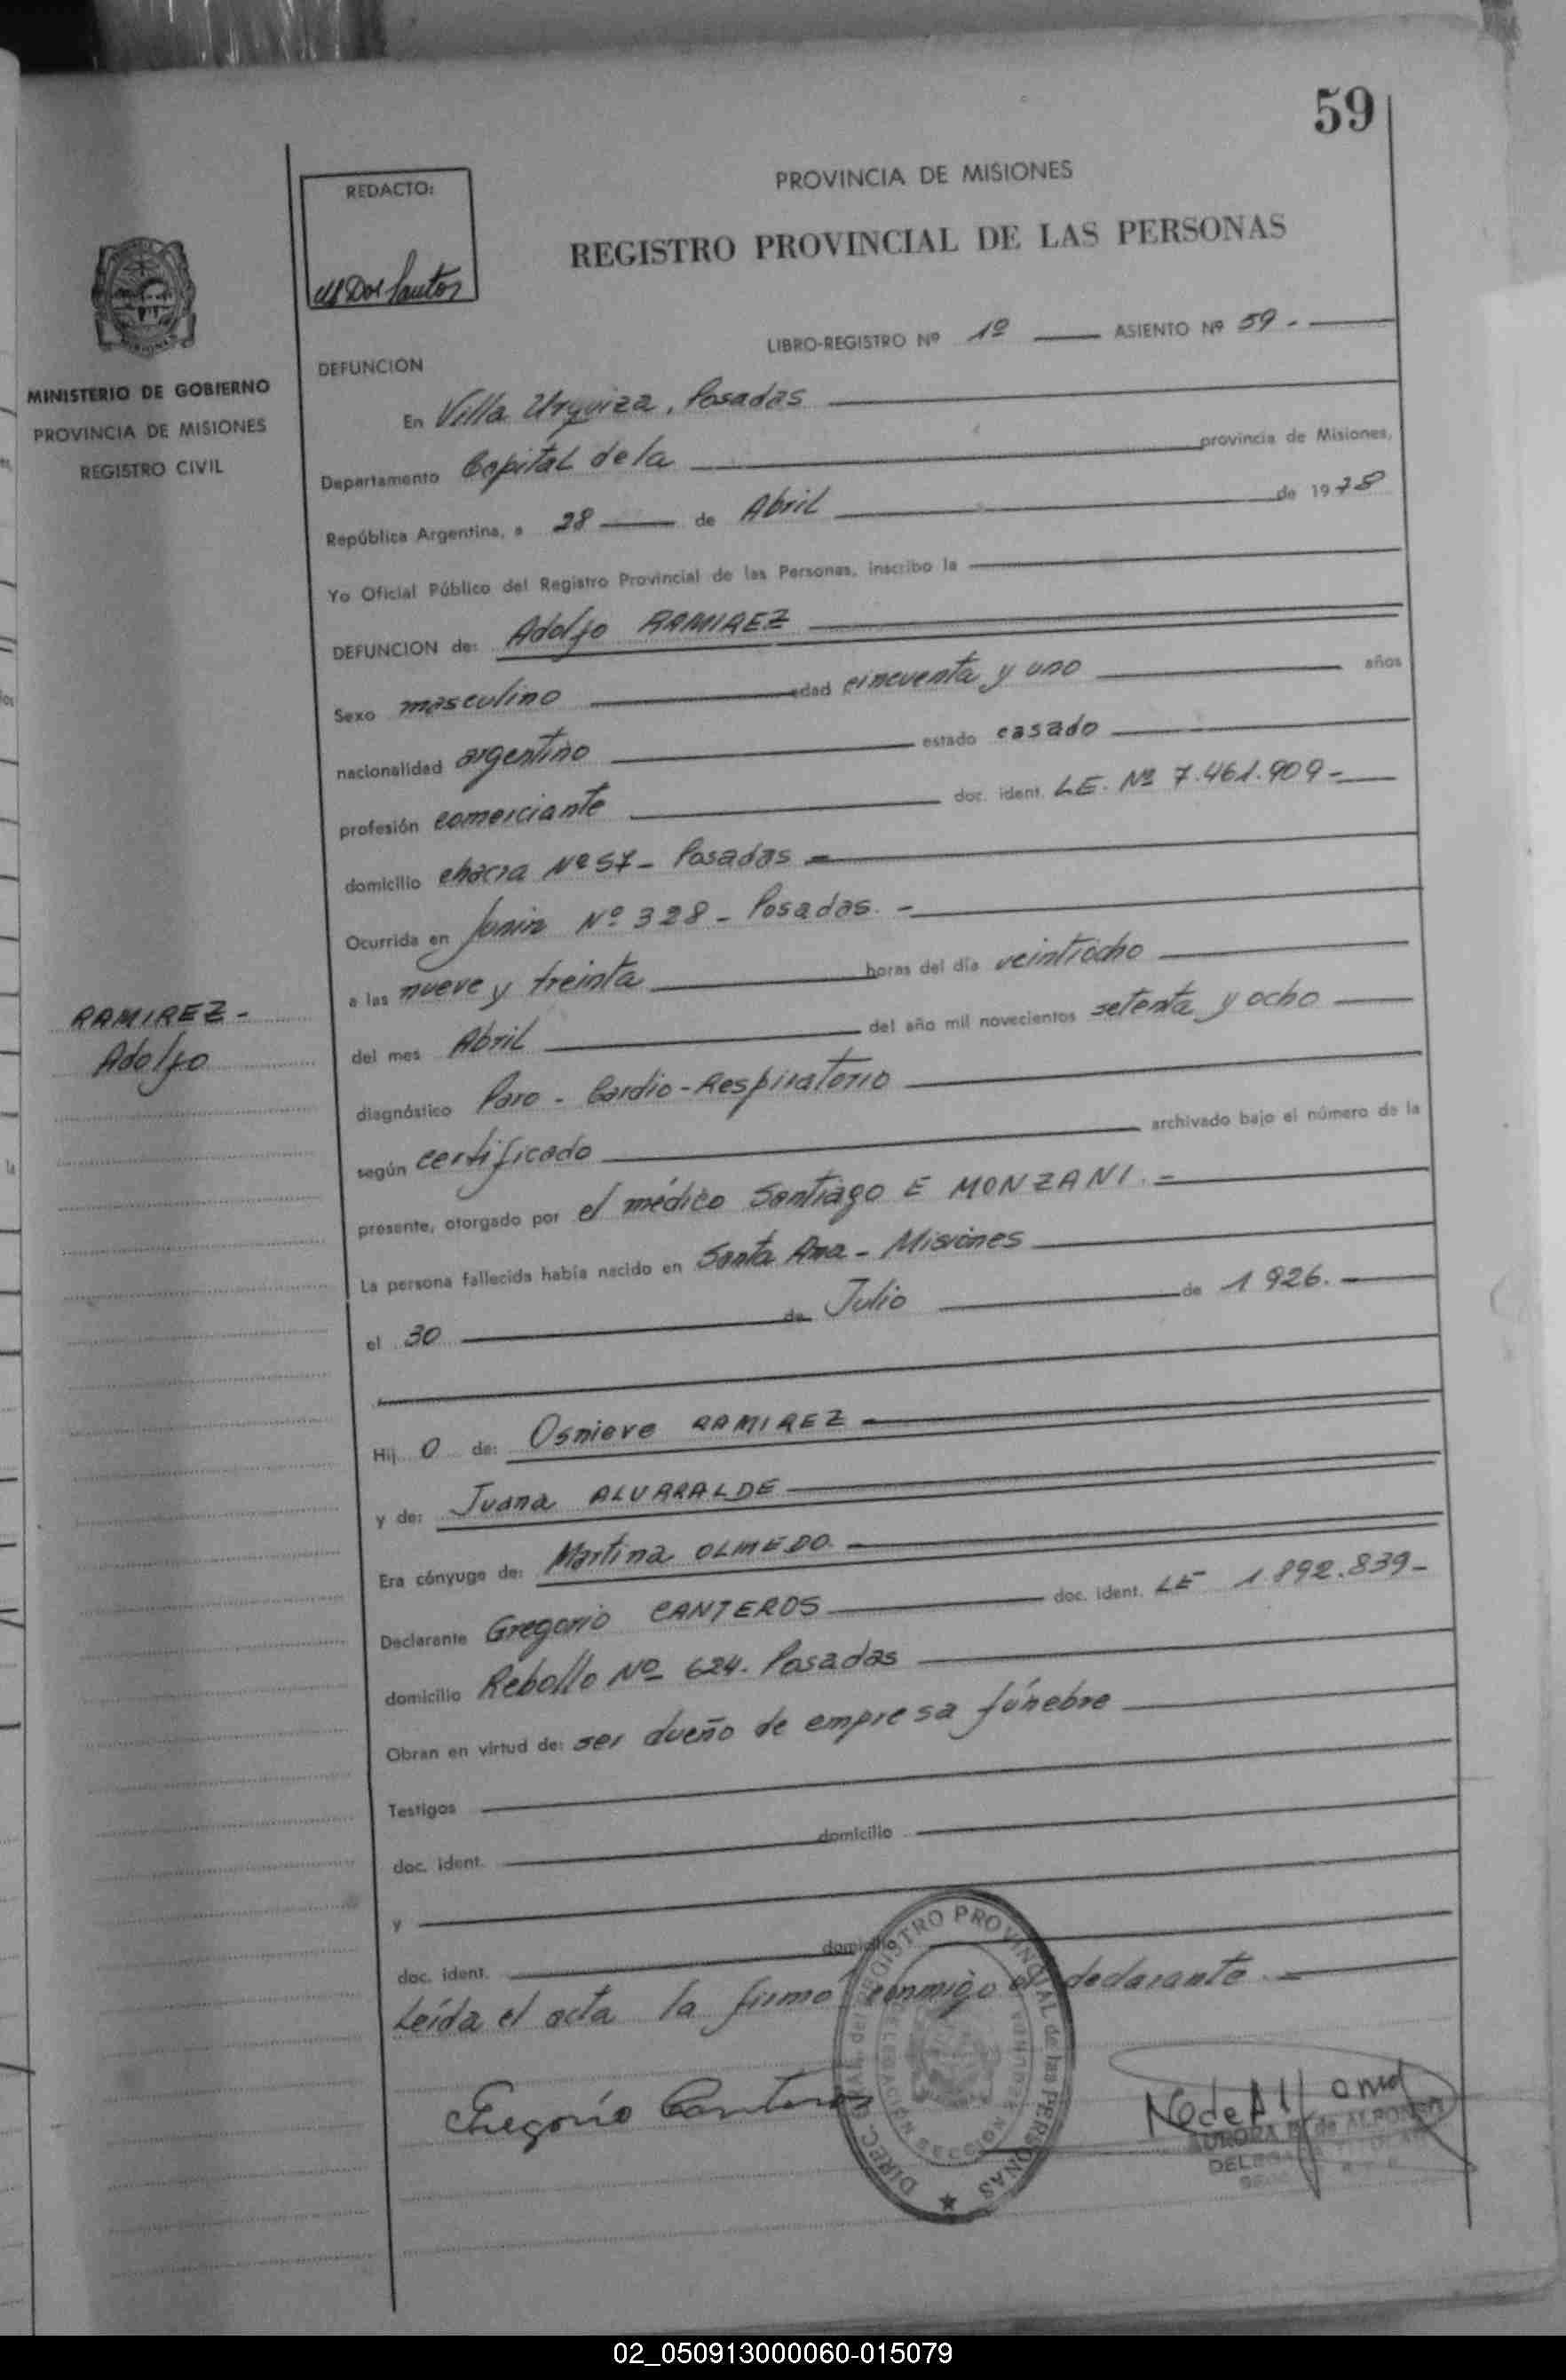 59
PROVINCIA DE MISIONES
REDACTO:
REGISTRO PROVINCIAL DE LAS PERSONAS
Dos Santos
LIBRO-REGISTRO Nº 1º ASIENTO Nº 59.-
DEFUNCION
MINISTERIO DE GOBIERNO
PROVINCIA DE MISIONES
REGISTRO CIVIL
En Villa Urquiza, Posadas
Departamento Capital de la provincia de Misiones,
República Argentina, a 28 de Abril de 1978
Yo Oficial Público del Registro Provincial de las Personas, inscribo la
DEFUNCION de: Adolfo RAMIREZ
Sexo masculino edad cincuenta y uno años
nacionalidad argentino estado casado
profesión comerciante doc. ident. LE. Nº 7.461.909-
domicilio chacra Nº 57- Posadas -
Ocurrida en Junin Nº 328 - Posadas. -
a las nueve y treinta horas del día veintiocho
RAMIREZ -
Adolfo
del mes Abril del año mil novecientos setenta y ocho
diagnóstico Paro - Cardio-Respiratorio
según certificado archivado bajo el número de la
presente, otorgado por el médico Santiago E MONZANI. -
La persona fallecida había nacido en Santa Ana - Misiones
el 30 de Julio de 1926. -
Hij o de: Osnieve RAMIREZ
y de: Juana ALVARALDE
Era cónyuge de: Martina OLMEDO.
Declarante Gregorio CANTEROS doc. ident. LE 1.892.839-
domicilio Rebollo Nº 624. Posadas
Obran en virtud de: ser dueño de empresa fúnebre
Testigos
doc. ident. domicilio
y
doc. ident. domicilio
Leída el acta la firmó conmigo el declarante. -
Gregorio Canteros
DIREC. GRAL. del REGISTRO PROVINCIAL de las PERSONAS
DELEGACION SECCION
AURORA de ALFONSO
02_050913000060-015079